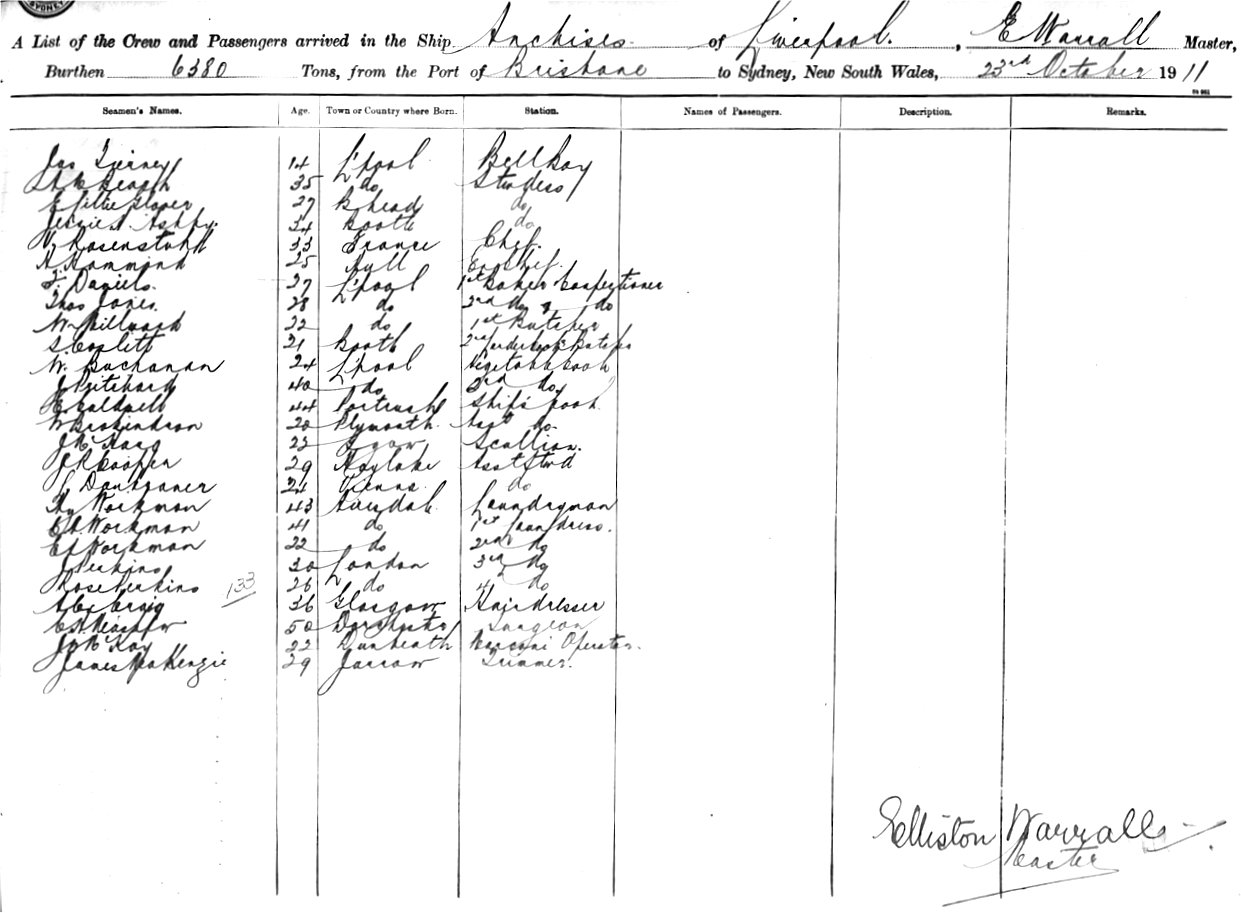 SYDNEY
A List of the Crew and Passengers arrived in the Ship Anchises of Liverpool. , E Warrall Master,
Burthen 6380 Tons, from the Port of Brisbane to Sydney, New South Wales, 23rd October 1911
Seamen's Names. Age. Town or Country where Born. Station. Names of Passengers. Description. Remarks.
Jas Tierney 14 L'pool Bell Boy
35 do Stwdess
Glover 27 B'head do
Jessie A. Ashby. 34 Bootle do
V. Rosenstohl 33 France Chef.
H. Hammond 25 Hull
F. Daniels. 27 L'pool 1st Baker Confectioner
Thos Jones. 28 do 2nd do & do
W. Millward 22 do 1st Butcher
S. Corlett 21 Bootle 2nd Butcher
W. Buchanan 24 L'pool Cook
J Pritchard 40 do 3rd do
E. Caldwell 44 Portrush Ship's Cook
W 20 Plymouth Asst do.
J. McHarg 22 Scullion.
J R Cooper 29 Hoylake Asst Stwd
24 Vienna do
Hy Workman 43 Laundryman
E A Workman 41 do 1st Laundress.
E L Workman 22 do 2nd do
J Perkins 30 London 3rd do
Rose Perkins 133 26 do 4 do
Alex Craig 36 Glasgow Hairdresser
50 Dorchester Surgeon
J. McKay 22 Dunbeath Marconi Operator.
James MacKenzie 29 Jarrow Trimmer.
Elliston Warrall
Master